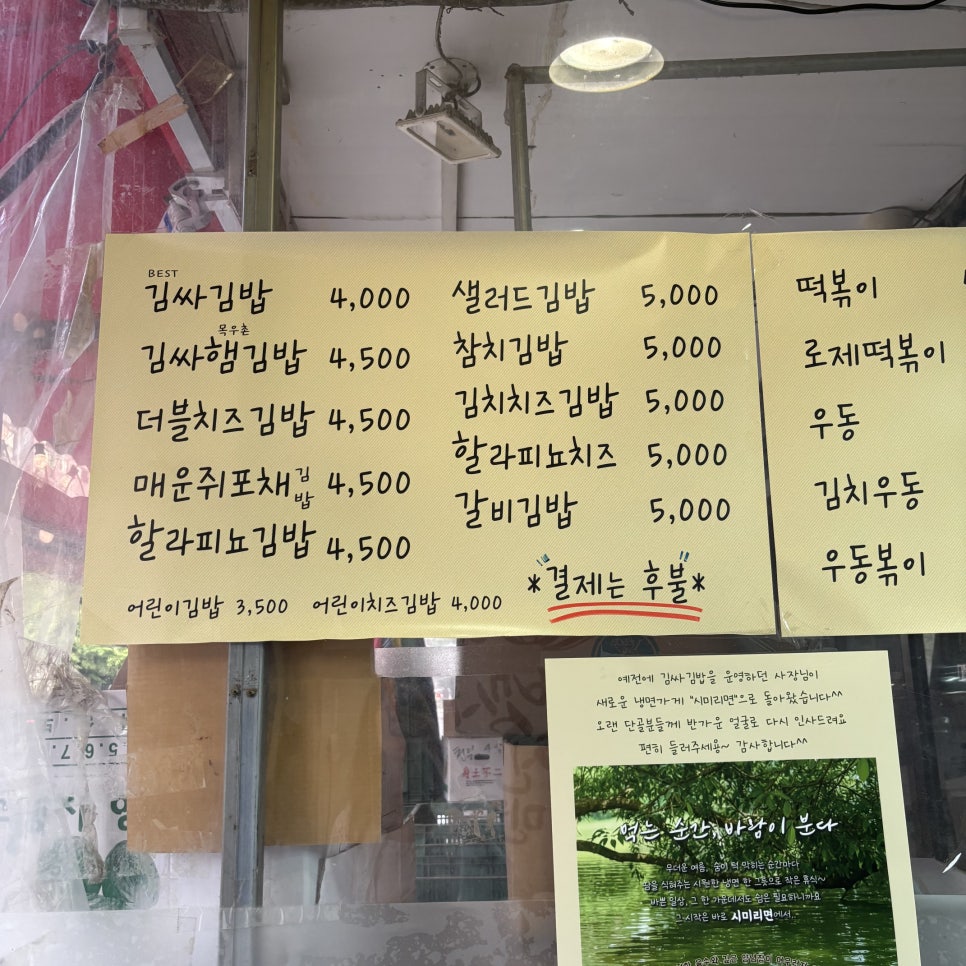 BEST
김싸김밥 4,000
목우촌
김싸햄김밥 4,500
더블치즈김밥 4,500
매운쥐포채김밥 4,500
할라피뇨김밥 4,500
어린이김밥 3,500 어린이치즈김밥 4,000
샐러드김밥 5,000
참치김밥 5,000
김치치즈김밥 5,000
할라피뇨치즈 5,000
갈비김밥 5,000
*"결제는 후불"*
떡볶이
로제떡볶이
우동
김치우동
우동볶이
예전에 김싸김밥을 운영하던 사장님이
새로운 냉면가게 "시미리면"으로 돌아왔습니다^^
오랜 단골분들께 반가운 얼굴로 다시 인사드려요
편히 들러주세용~ 감사합니다^^
먹는 순간, 바람이 분다
무더운 여름, 숨이 턱 막히는 순간마다
땀을 식혀주는 시원한 냉면 한 그릇으로 작은 휴식~
바쁜 일상, 그 한 가운데서도 쉼은 필요하니까요
그 시작은 바로 시미리면에서.
5.6.7.